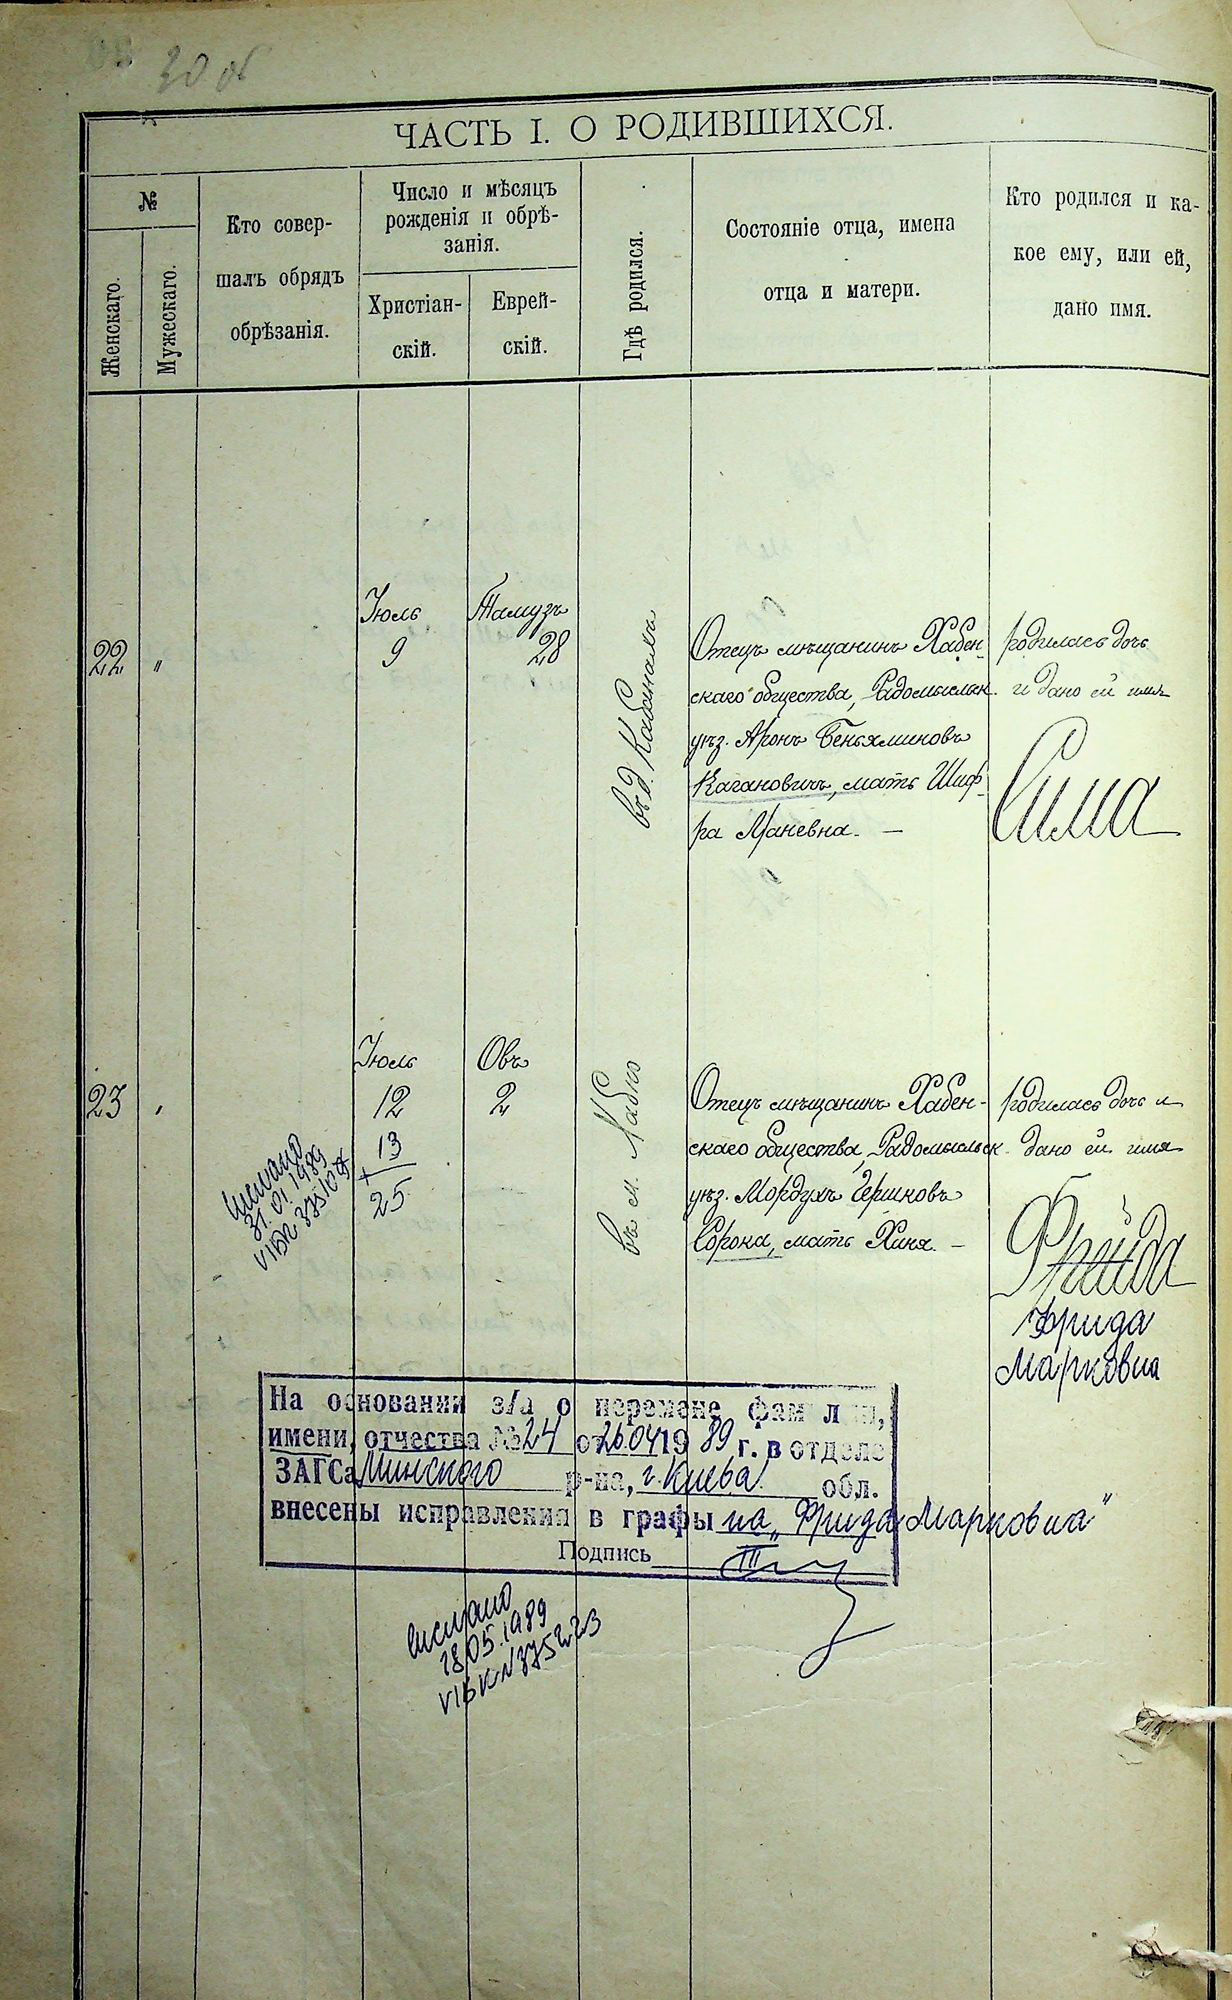 30 об
ЧАСТЬ I. О РОДИВШИХСЯ.
№
Женскаго.
Мужескаго.
Кто совер-
шалъ обрядъ
обрѣзанія.
Число и мѣсяцъ
рожденія и обрѣ-
занія.
Христіан-
скій.
Еврей-
скій.
Гдѣ родился.
Состояніе отца, имена
отца и матери.
Кто родился и ка-
кое ему, или ей,
дано имя.
22
"
Іюль
9
Тамузъ
28
въ д.
Отецъ мѣщанинъ Хабен-
скаго общества, Радомысльк.
уѣз. Аронъ Беньяминовъ
Кагановичъ, мать Шиф-
ра Маневна. —
родилась дочь
и дано ей имя
Сима
23
Іюль
12
13
+
25
Овъ
2
въ м. Хабно
Отецъ мѣщанинъ Хабен-
скаго общества, Радомысльск.
уѣз. Мордухъ Гершковъ
Сорока, мать Хиня. —
родилась дочь и
дано ей имя
Фрейда
Фрида
Марковна
31.01.1989
На основании з/а о перемене фамилии,
имени, отчества № 24 от 26.04 1989 г. в отделе
ЗАГСа Минского р-на, г. Киева обл.
внесены исправления в графы на „Фрида Марковна"
Подпись
18.05.1989